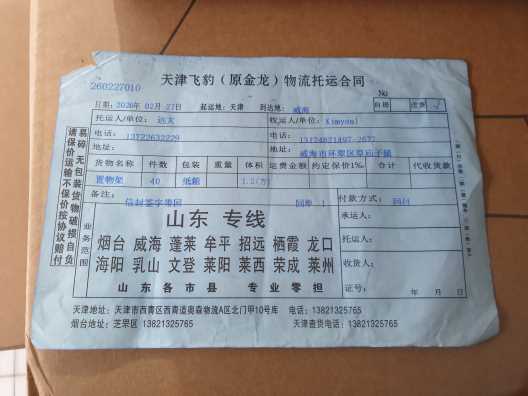 天津飞豹（原金龙）物流托运合同
260227010
No
日期：2026年 02月 27日 起运地：天津 到达地：威海 自提 送货 √
托运人/单位：远大 收货人/单位：Kimyoul
电话：13722632229 电话：
地址： 地址：威海市环翠区草庙子镇
货物名称 件数 包装 重量 体积 运费金额 约定保价1‰ 合计 代收货款
置物架 40 纸箱 1.2(方)
备注：信封签字带回 回单：1 付款方式：回付
业务范围
山东 专线
烟台 威海 蓬莱 牟平 招远 栖霞 龙口
海阳 乳山 文登 莱阳 莱西 荣成 莱州
山东各市县 专业零担
承运人：
托运人：
收货人：
证号： 年 月 日
易碎、无包装货物破损自负
请保价运输不保价按协议赔付
天津地址：天津市西青区西青道奥森物流A区北门甲10号库 电话：13821325765
烟台地址：芝罘区 13821325765 天津查货电话：13821325765